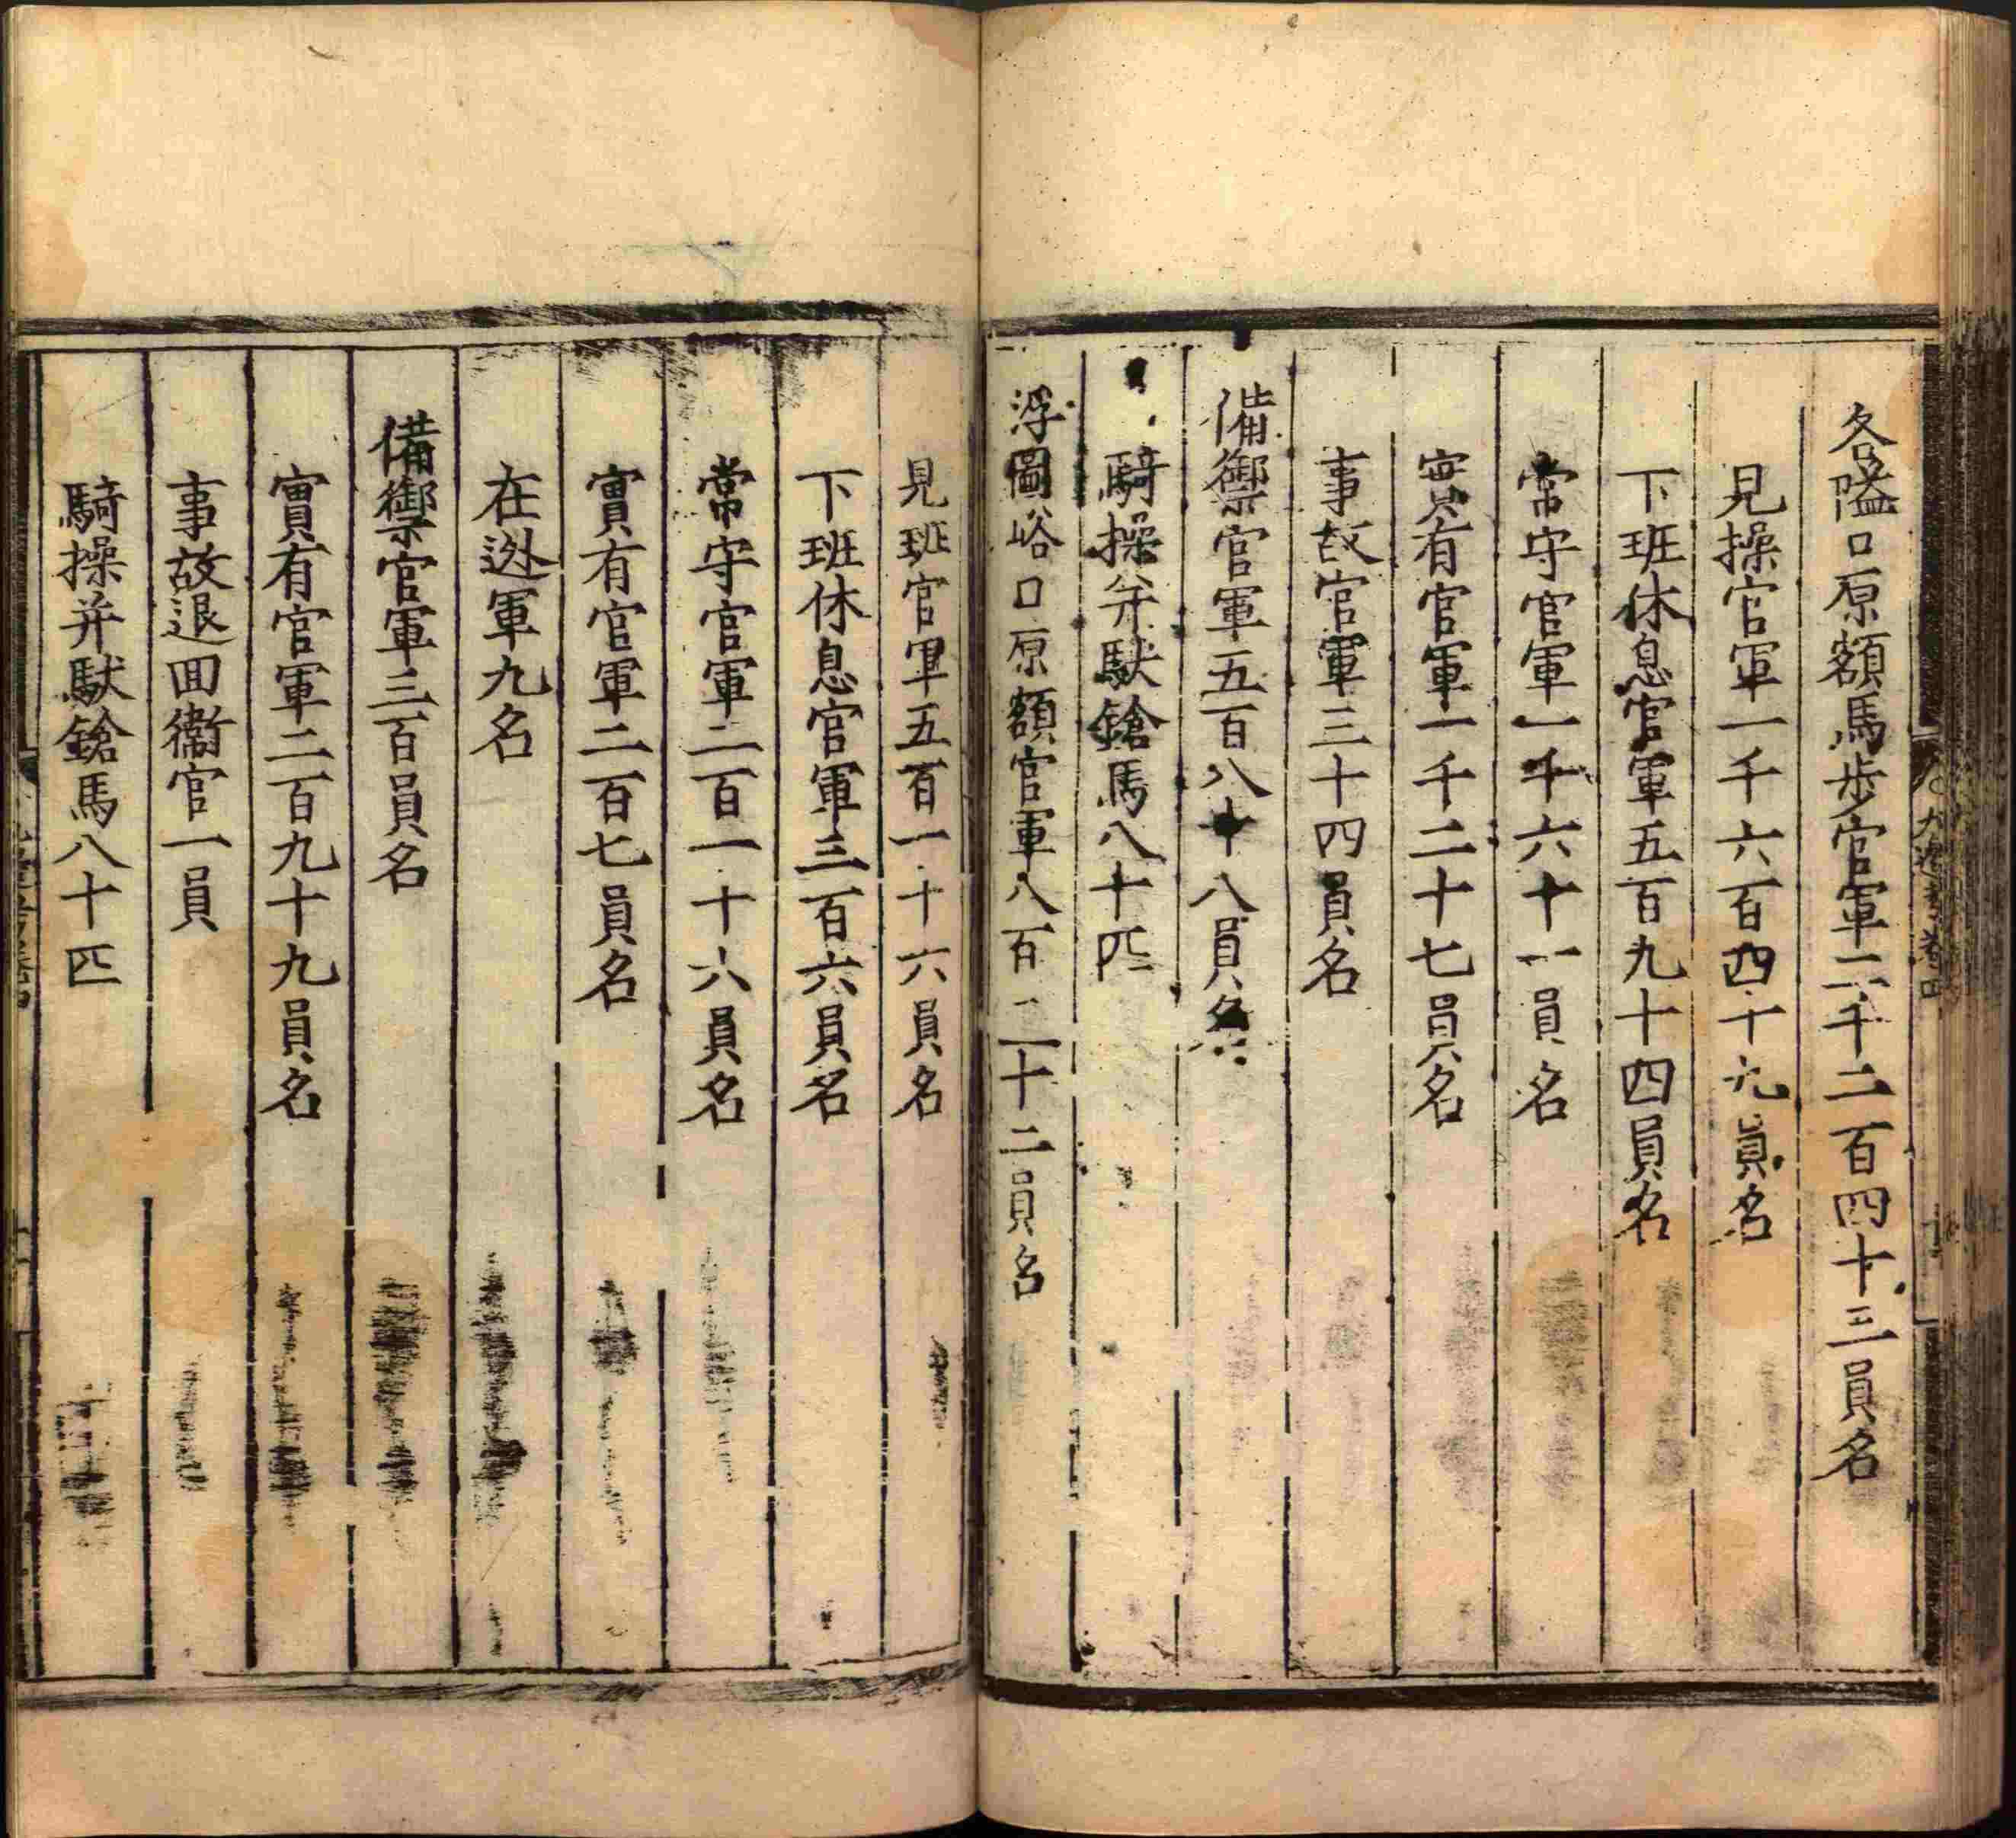 各隘口原額馬步官軍二千二百四十三員名
見操官軍一千六百四十九員名
下班休息官軍五百九十四員名
常守官軍一千六十一員名
實有官軍一千二十七員名
事故官軍三十四員名
備禦官軍五百八十八員名
騎操并馱鎗馬八十匹
浮圖峪口原額官軍八百二十二員名
見班官軍五百一十六員名
下班休息官軍三百六員名
常守官軍二百一十六員名
實有官軍二百七員名
在迯軍九名
備禦官軍三百員名
實有官軍二百九十九員名
事故退回衞官一員
騎操并馱鎗馬八十匹